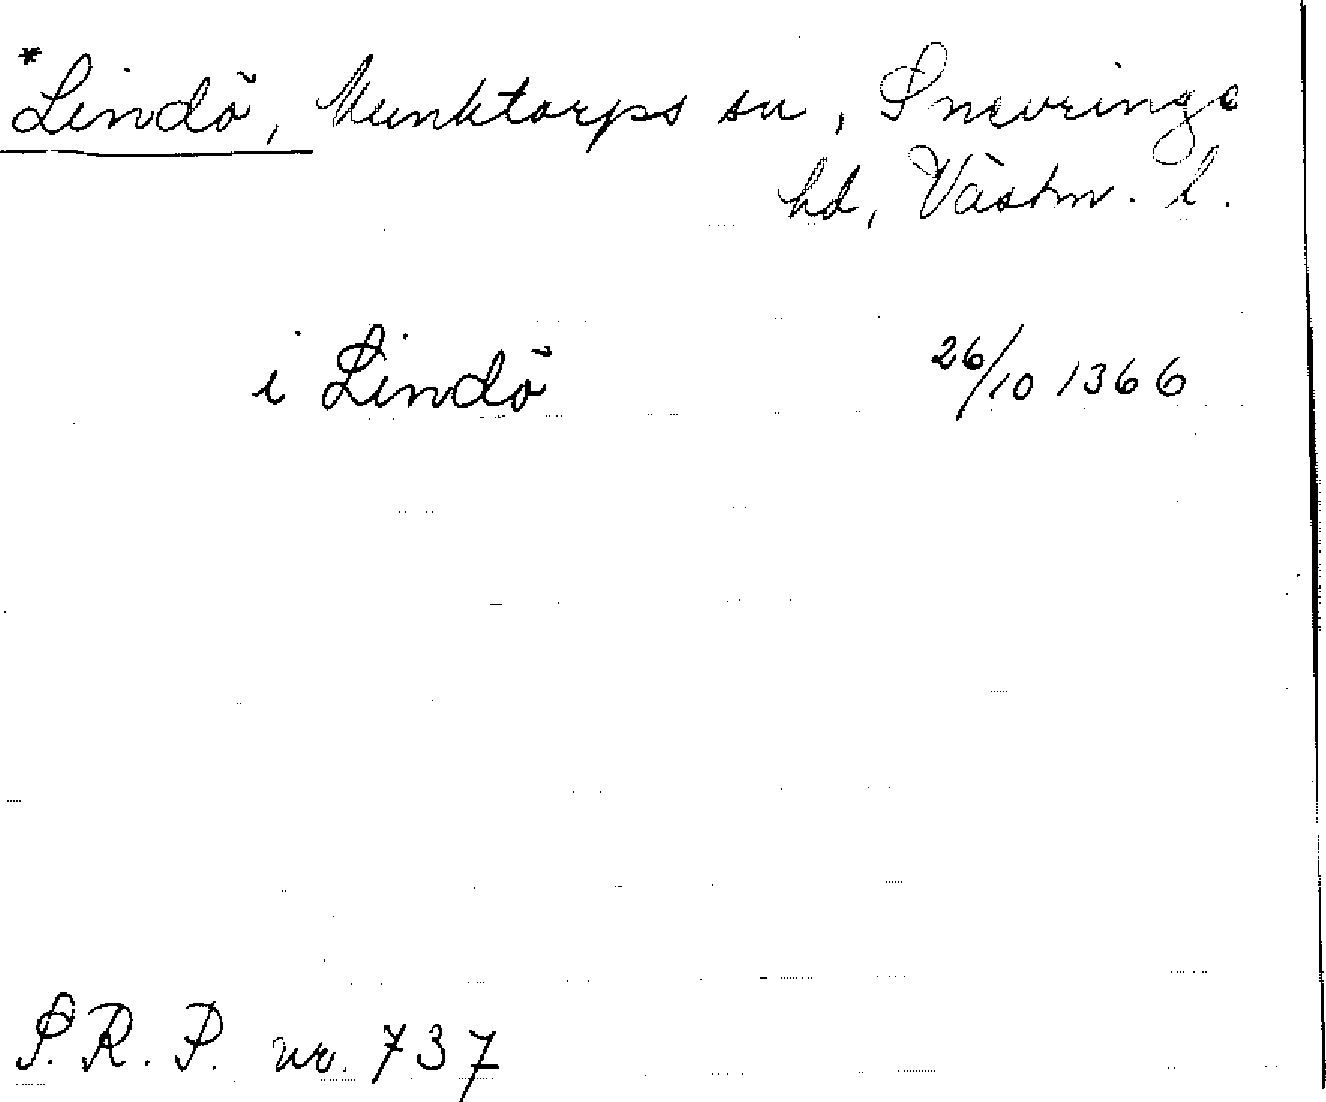 *Lindö, Munktorps sn, Snevringe
hd, Västm. l.
i Lindö 26/10 1366
S.R.P. nr. 737